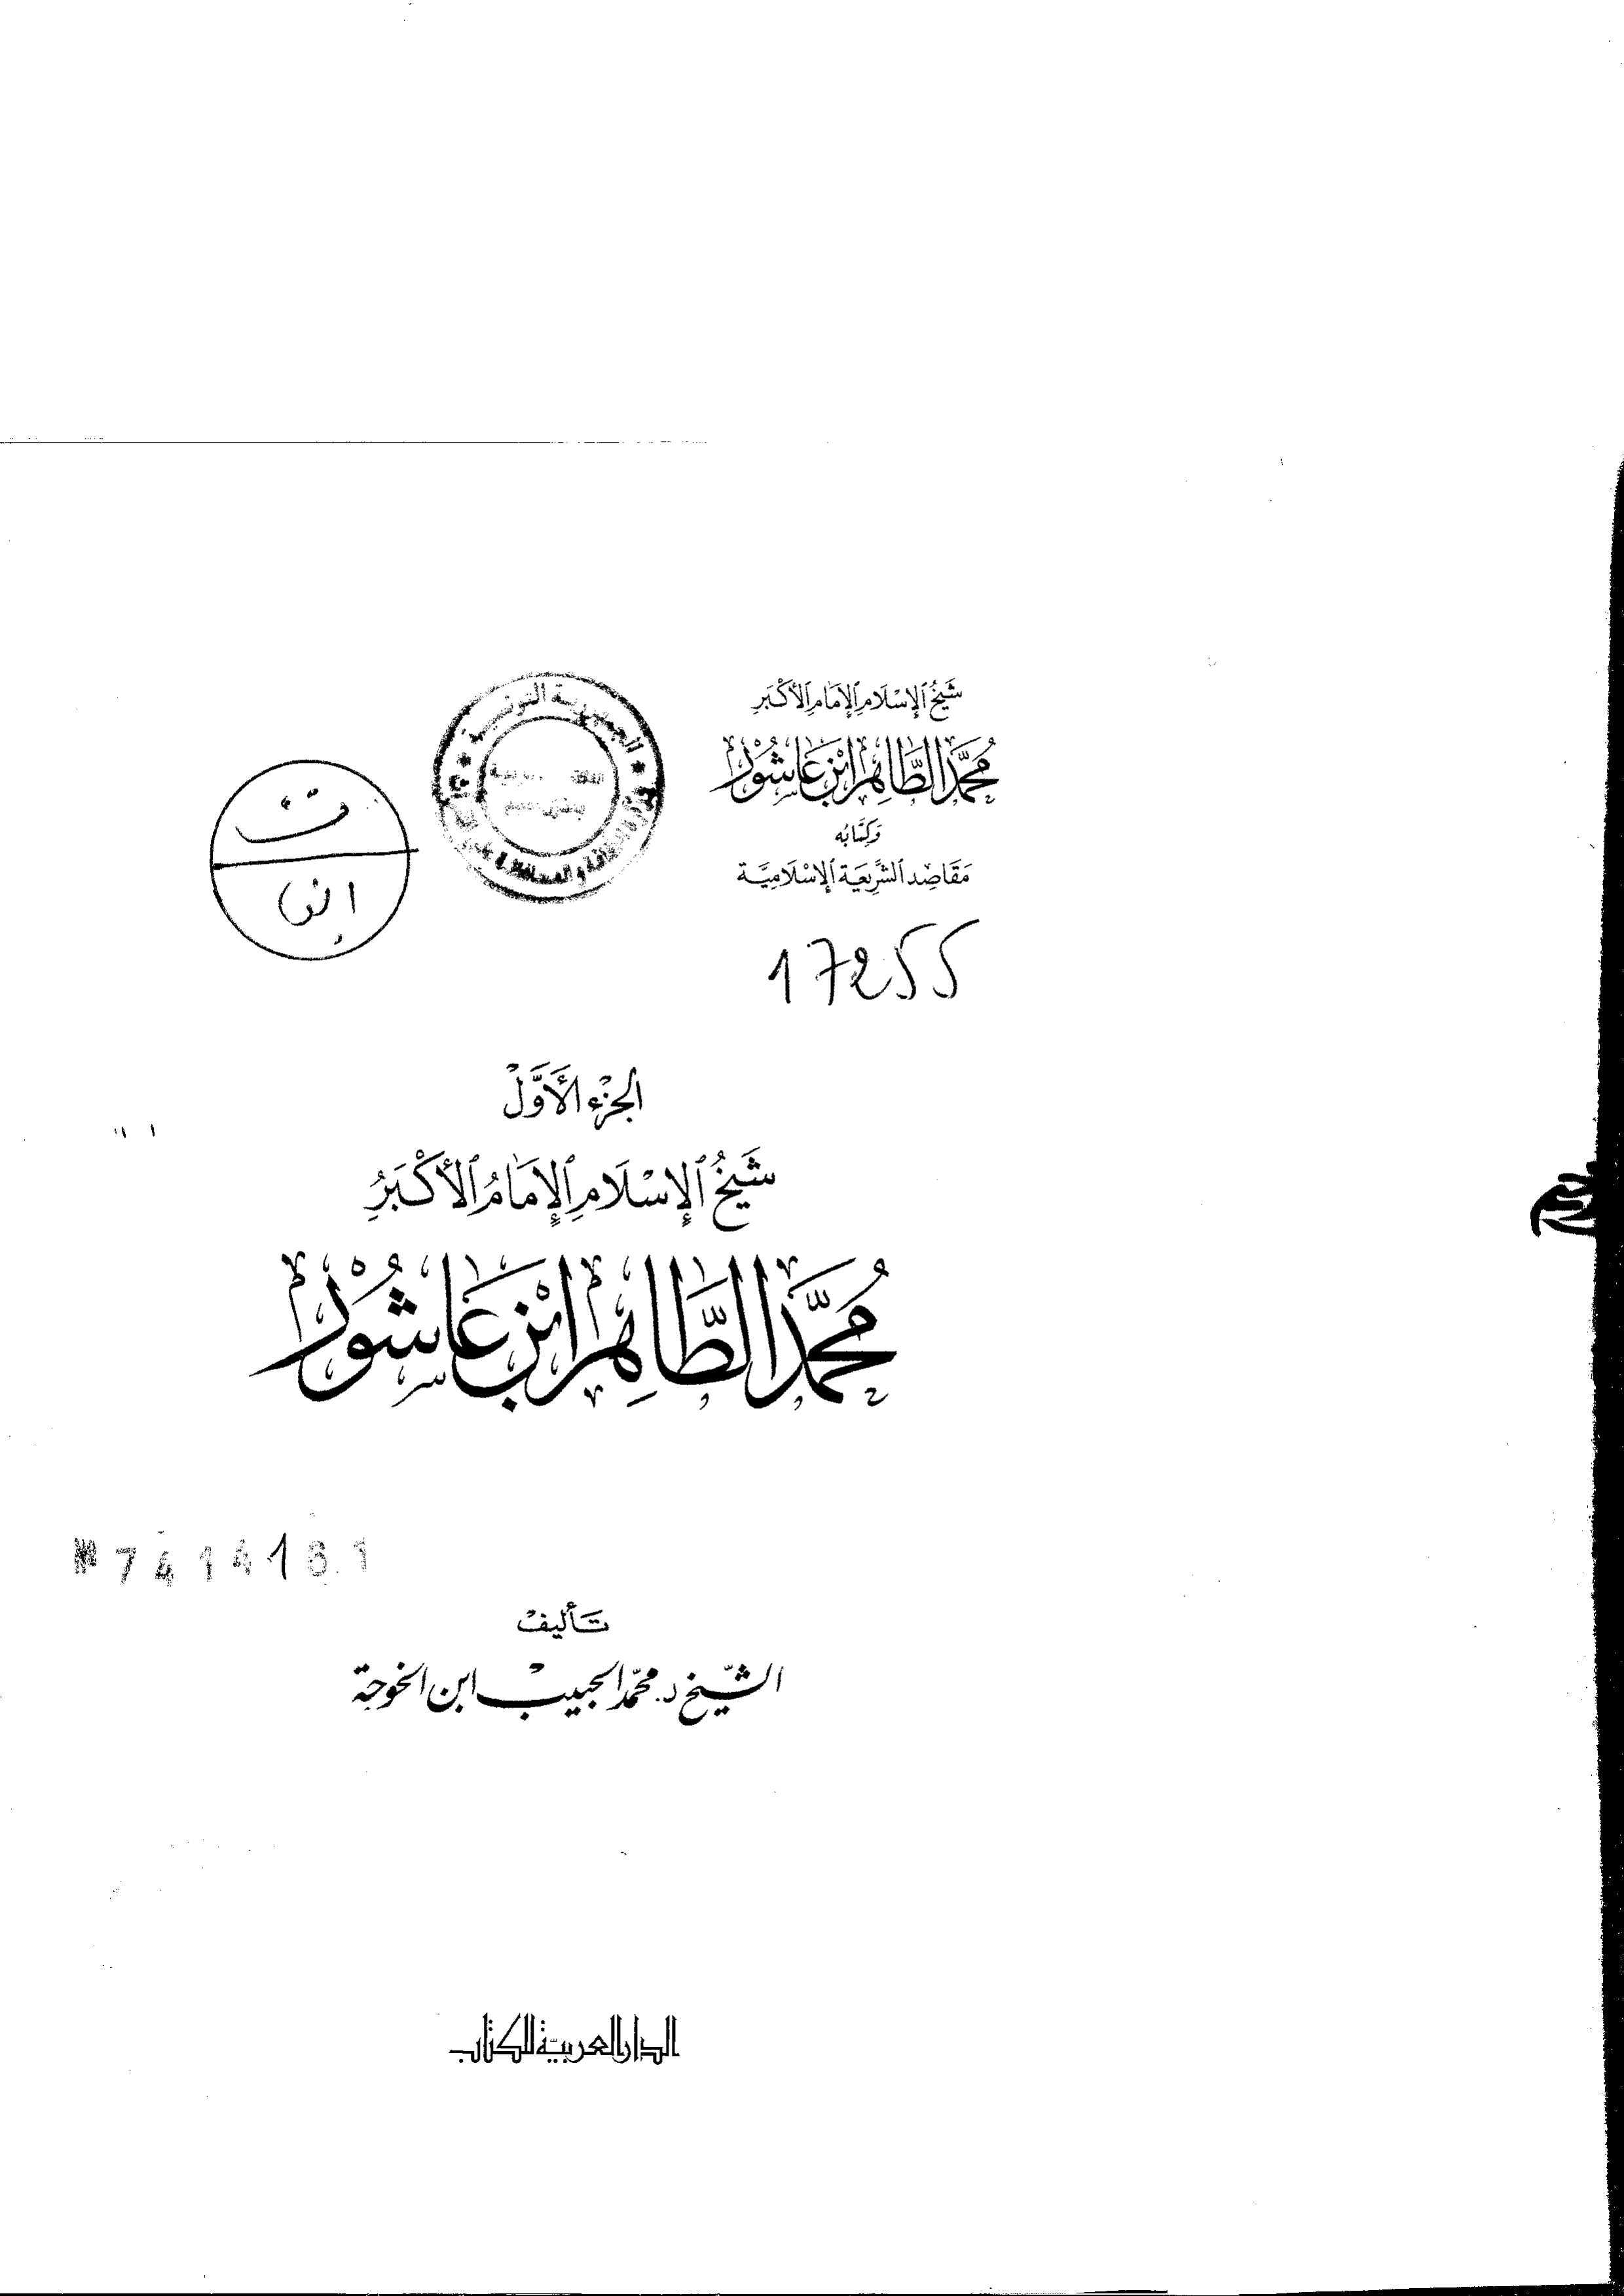 شَيْخُ ٱلإِسْلَامِ ٱلإِمَامِ ٱلأَكْبَرِ
مُحَمَّد الطَّاهِر ابْن عَاشُوْر
وَكِتَابُه
مَقَاصِد ٱلشَّرِيعَة ٱلإِسْلَامِيَّة
الجمهورية التونسية
17255
الجُزْء الأَوَّلْ
شَيْخُ ٱلإِسْلَامِ ٱلإِمَامُ ٱلأَكْبَرُ
مُحَمَّد الطَّاهِر ابْن عَاشُوْر
تَأليفْ
الشّيخ د. محمّد الحبيبْ ابن الخوجة
الدار العربيّة للكتاب